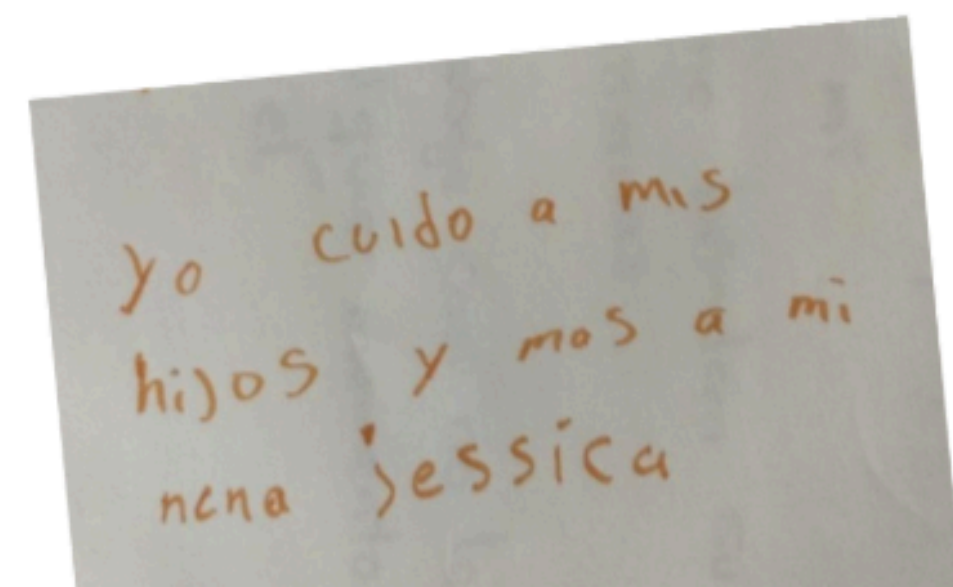 yo cuido a mis
hijos y mas a mi
nena jessica